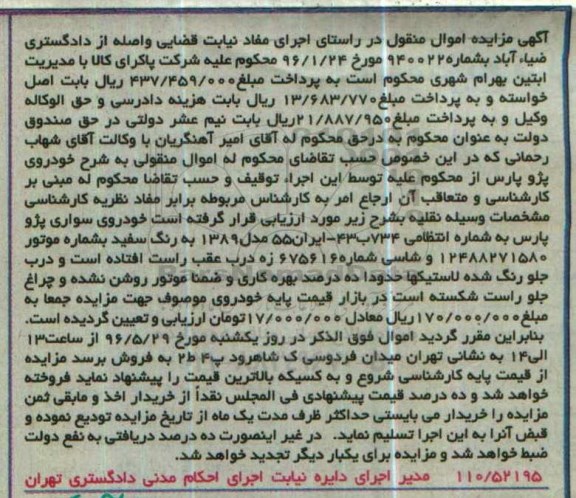 آگهی مزایده اموال منقول در راستای اجرای مفاد نیابت قضایی واصله از دادگستری
ضیاء آباد بشماره ۹۴۰۰۲۲۰ مورخ ۹۶/۱/۲۴ محکوم علیه شرکت پاکرای کالا با مدیریت
ابتین بهرام شهری محکوم است به پرداخت مبلغ ۴۳۷/۴۵۹/۰۰۰ ریال بابت اصل
خواسته و به پرداخت مبلغ ۱۳/۶۸۳/۷۷۰ ریال بابت هزینه دادرسی و حق الوکاله
وکیل و به پرداخت مبلغ ۲۱/۸۸۷/۹۵۰ ریال بابت نیم عشر دولتی در حق صندوق
دولت به عنوان محکوم به درحق محکوم له آقای امیر آهنگریان با وکالت آقای شهاب
رحمانی که در این خصوص حسب تقاضای محکوم له اموال منقولی به شرح خودروی
پژو پارس از محکوم علیه توسط این اجراء توقیف و حسب تقاضا محکوم له مبنی بر
کارشناسی و متعاقب آن ارجاع امر به کارشناس مربوطه برابر مفاد نظریه کارشناسی
مشخصات وسیله نقلیه بشرح زیر مورد ارزیابی قرار گرفته است خودروی سواری پژو
پارس به شماره انتظامی ۷۳۴ب۴۳-ایران۵۵ مدل ۱۳۸۹ به رنگ سفید بشماره موتور
۱۲۴۸۸۲۷۱۵۸۰ و شاسی شماره ۶۷۵۶۱۶ زه درب عقب راست افتاده است و درب
جلو رنگ شده لاستیکها حدودا ده درصد بهره کاری و ضمنا موتور روشن نشده و چراغ
جلو راست شکسته است در بازار قیمت پایه خودروی موصوف جهت مزایده جمعا به
مبلغ ۱۷۰/۰۰۰/۰۰۰ ریال معادل ۱۷/۰۰۰/۰۰۰ تومان ارزیابی و تعیین گردیده است.
بنابراین مقرر گردید اموال فوق الذکر در روز یکشنبه مورخ ۹۶/۵/۲۹ از ساعت ۱۳
الی ۱۴ به نشانی تهران میدان فردوسی ک شاهرود پ۴ ط۲ به فروش برسد مزایده
از قیمت پایه کارشناسی شروع و به کسیکه بالاترین قیمت را پیشنهاد نماید فروخته
خواهد شد و ده درصد قیمت پیشنهادی فی المجلس نقداً از خریدار اخذ و مابقی ثمن
مزایده را خریدار می بایستی حداکثر ظرف مدت یک ماه از تاریخ مزایده تودیع نموده و
قبض آنرا به این اجرا تسلیم نماید. در غیر اینصورت ده درصد دریافتی به نفع دولت
ضبط خواهد شد و مزایده برای یکبار دیگر تجدید خواهد شد.
۱۱۰/۵۲۱۹۵ مدیر اجرای دایره نیابت اجرای احکام مدنی دادگستری تهران